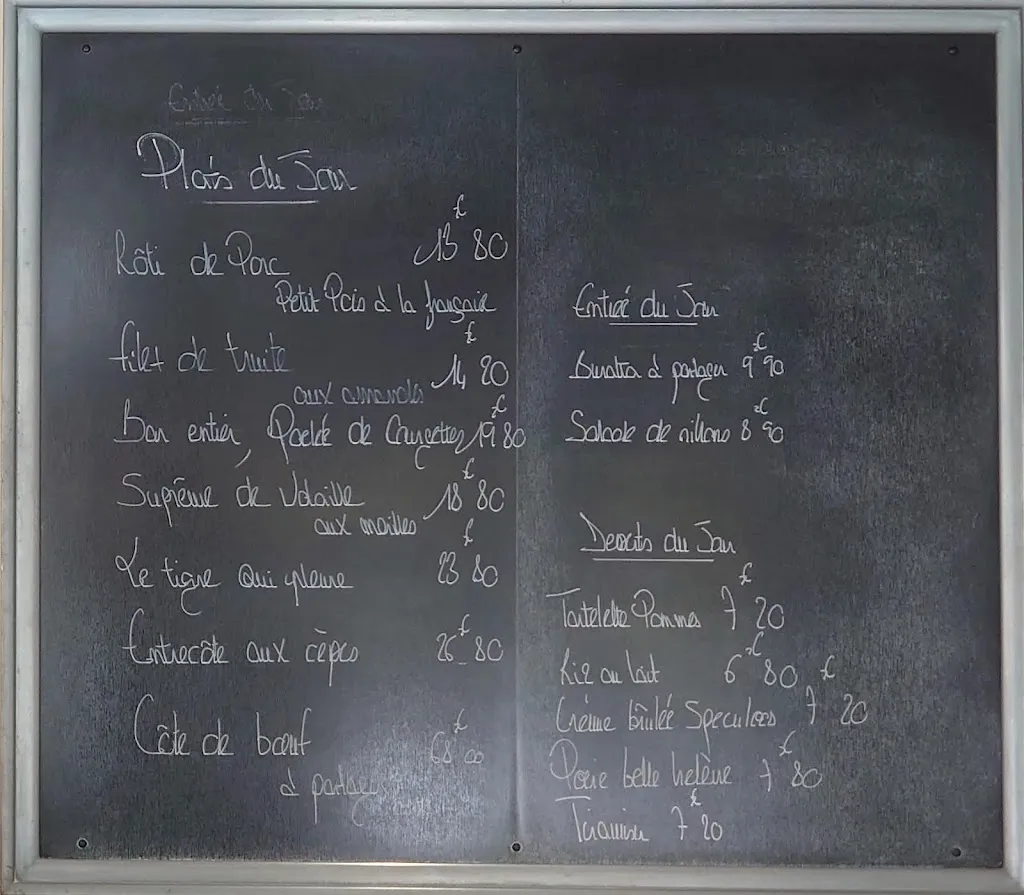 Entrée du Jour
Plats du Jour
Rôti de Porc 13€80
Petit Pois à la française
filet de truite 14€80
aux amandes
Bar entier, Poelée de Courgettes 19€80
Suprême de Volaille 18€80
aux morilles
Le tigre qui pleure 23€80
Entrecôte aux cèpes 26€80
Côte de bœuf 68€00
à partager
Entrée du Jour
Buratta à partager 9€90
Salade de rillons 8€90
Desserts du Jour
Tartelette Pommes 7€20
Riz au lait 6€80
Crème brûlée Speculoos 7€20
Poire belle helène 7€80
Tiramisu 7€20